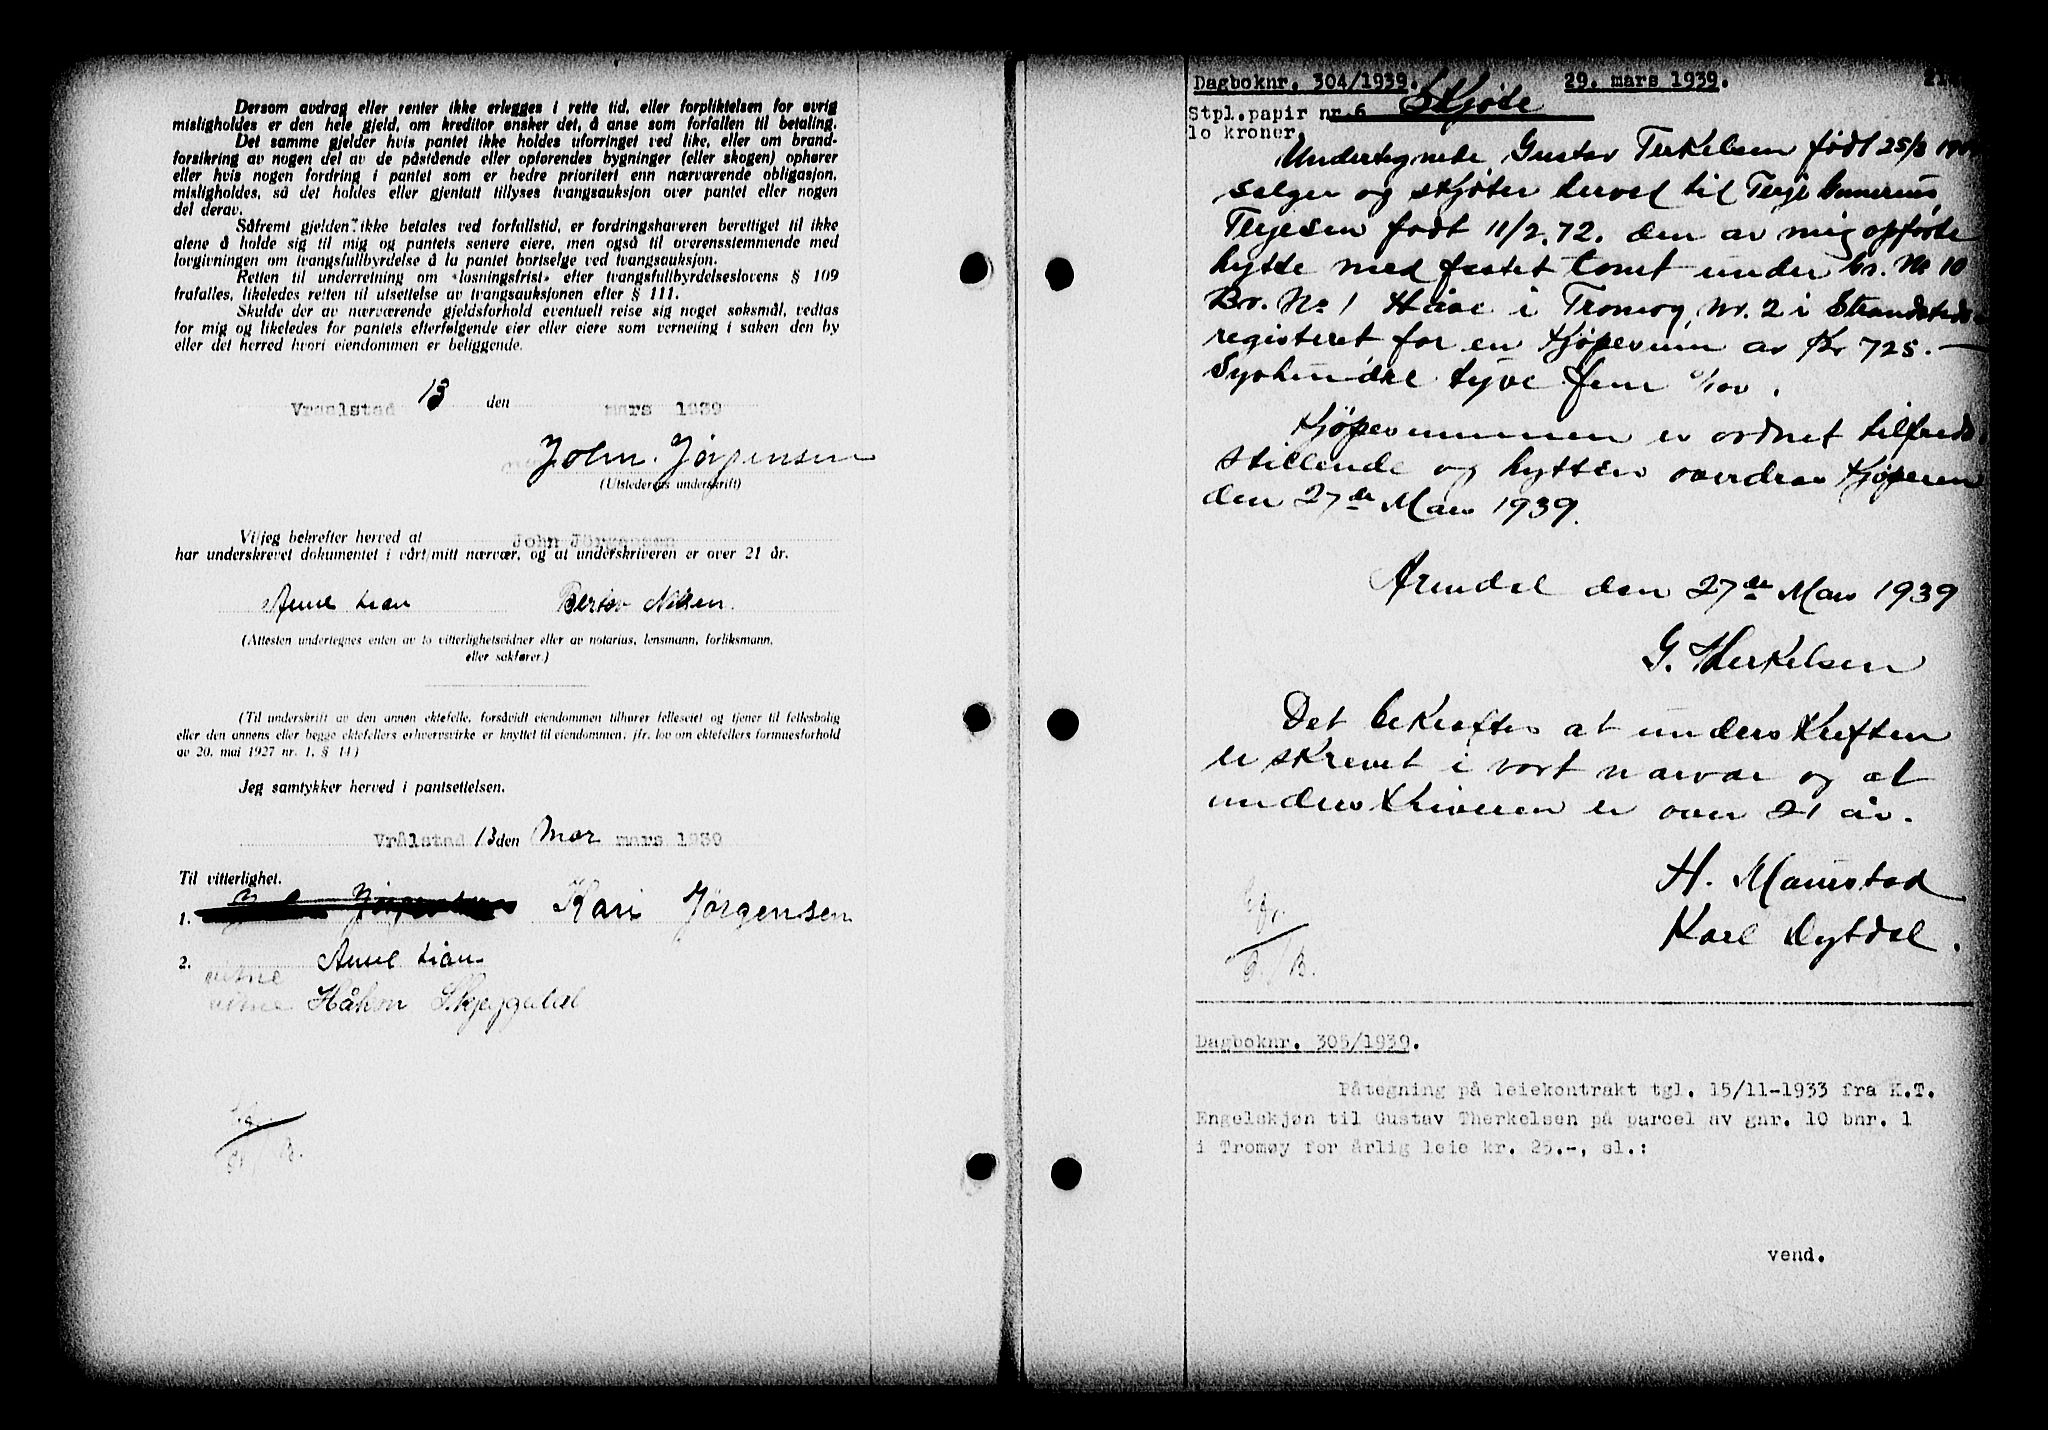 Dersom avdrag eller renter ikke erlegges i rette tid, eller forpliktelsen for øvrig
misligholdes er den hele gjeld, om kreditor ønsker det, å anse som forfallen til betaling.
Det samme gjelder hvis pantet ikke holdes uforringet ved like, eller om brand-
forsikring av nogen del av de påstående eller opførendes bygninger (eller skogen) ophører
eller hvis nogen fordring i pantet som er bedre prioritert enn nærværende obligasjon,
misligholdes, så det holdes eller gjentatt tillyses tvangsauksjon over pantet eller nogen
del derav.
Såfremt gjelden ikke betales ved forfallstid, er fordringshaveren berettiget til ikke
alene å holde sig til mig og pantets senere eiere, men også til overensstemmende med
lovgivningen om tvangsfullbyrdelse å la pantet bortselge ved tvangsauksjon.
Retten til underretning om «løsningsfrist» efter tvangsfullbyrdelseslovens § 109
frafalles, likeledes retten til utsettelse av tvangsauksjonen efter § 111.
Skulde der av nærværende gjeldsforhold eventuelt reise sig noget søksmål, vedtas
for mig og likeledes for pantets efterfølgende eier eller eiere som verneting i saken den by
eller det herred hvori eiendommen er beliggende.
Vraalstad 13 den mars 1939
John Jørgensen
(Utstederens underskrift)
Vi/jeg bekrefter herved at John Jörgensen
har underskrevet dokumentet i vårt/mitt nærvær, og at underskriveren er over 21 år.
(Attesten undertegnes enten av to vitterlighetsvidner eller av notarius, lensmann, forliksmann,
eller sakfører.)
(Til underskrift av den annen ektefelle, forsåvidt eiendommen tilhører felleseiet og tjener til fellesbolig
eller den annens eller begge ektefellers erhvervsvirke er knyttet til eiendommen, jfr. lov om ektefellers formuesforhold
av 20. mai 1927 nr. 1, § 14)
Jeg samtykker herved i pantsettelsen.
Vrålstad 13 den Mar mars 1939
Til vitterlighet.
1. Kari Jørgensen
2.
vitne
vitne Håkon
Dagboknr. 304/1939. Skjøte 29. mars 1939.
Stpl.papir nr.6
10 kroner.
Undertegnede Gustav Terkelsen født 25/8
selger og skjøter herved til Terje Gunerius
Terjesen født 11/2.72. den av mig opførte
hytte med festet tomt under Gr. No 10
Br. No 1 Håve i Tromøy, nr. 2 i Strandsteds
registeret for en kjøpesum av Kr 725.—
Syvhundre tyve fem 0/00.
Kjøpesummen er ordnet tilfreds
stillende og hytten overdras kjøperen
den 27de Mars 1939.
Arendal den 27de Mars 1939
G. Therkelsen
Det bekreftes at underskriften
er skrevet i vort nærvær og at
underskriveren er over 21 år.
H.
Karl
Dagboknr. 305/1939.
Påtegning på leiekontrakt tgl. 15/11-1933 fra K.T.
Engelskjøn til Gustav Therkelsen på parcel av gnr. 10 bnr. 1
i Tromøy for årlig leie kr. 25.-, sl.:
vend.